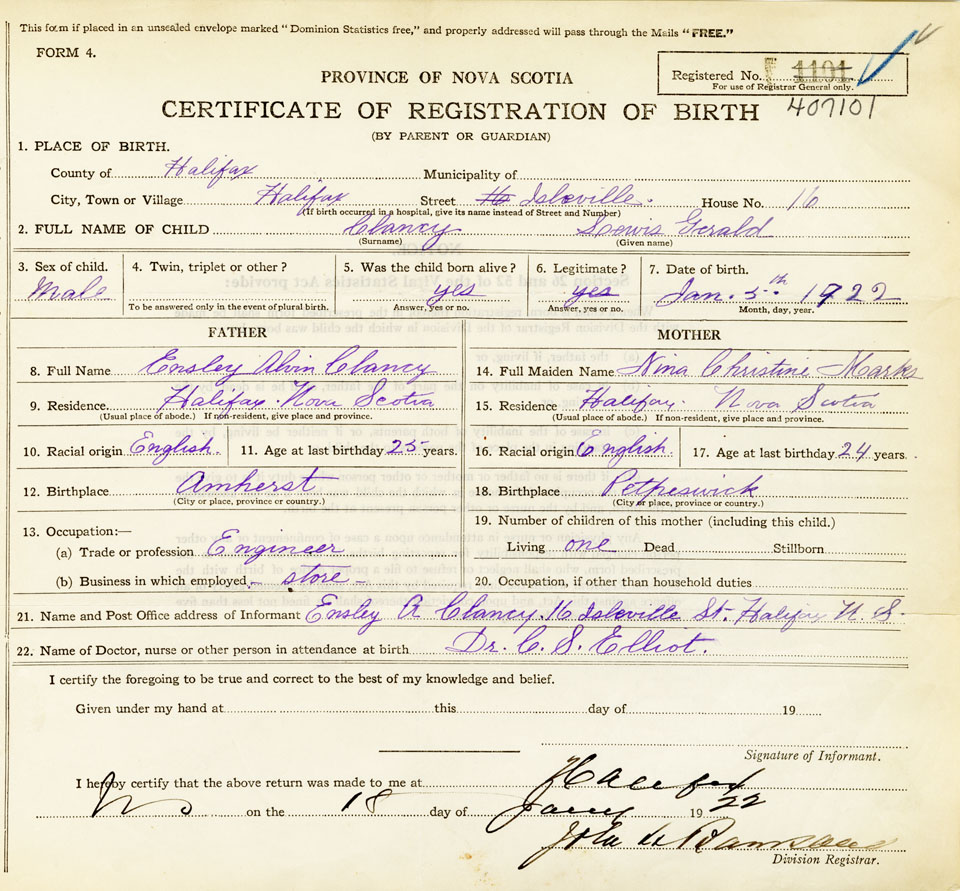 This form if placed in an unsealed envelope marked "Dominion Statistics free," and properly addressed will pass through the Mails "FREE."
FORM 4.
PROVINCE OF NOVA SCOTIA
Registered No. 1101
For use of Registrar General only.
407101
CERTIFICATE OF REGISTRATION OF BIRTH
(BY PARENT OR GUARDIAN)
1. PLACE OF BIRTH.
County of Halifax Municipality of
City, Town or Village Halifax Street 16 Isleville. House No. 16
(If birth occurred in a hospital, give its name instead of Street and Number)
2. FULL NAME OF CHILD Clancy Lewis Gerald
(Surname) (Given name)
3. Sex of child. 4. Twin, triplet or other? 5. Was the child born alive? 6. Legitimate? 7. Date of birth.
Male yes yes Jan. 5th 1922
To be answered only in the event of plural birth. Answer, yes or no. Answer, yes or no. Month, day, year.
FATHER MOTHER
8. Full Name Ensley Alvin Clancy 14. Full Maiden Name Nina Christine Marks
9. Residence Halifax. Nova Scotia 15. Residence Halifax. Nova Scotia
(Usual place of abode.) If non-resident, give place and province. (Usual place of abode.) If non-resident, give place and province.
10. Racial origin English. 11. Age at last birthday 25 years. 16. Racial origin English. 17. Age at last birthday 24 years.
12. Birthplace Amherst 18. Birthplace Petpeswick
(City or place, province or country.) (City or place, province or country.)
13. Occupation:— 19. Number of children of this mother (including this child.)
(a) Trade or profession Engineer Living one Dead Stillborn
(b) Business in which employed - store - 20. Occupation, if other than household duties
21. Name and Post Office address of Informant Ensley A Clancy. 16 Isleville St. Halifax N. S.
22. Name of Doctor, nurse or other person in attendance at birth Dr. C. S. Elliot.
I certify the foregoing to be true and correct to the best of my knowledge and belief.
Given under my hand at this day of 19
Signature of Informant.
I hereby certify that the above return was made to me at Halifax
N S on the 18 day of Jany 19 22
John
Division Registrar.